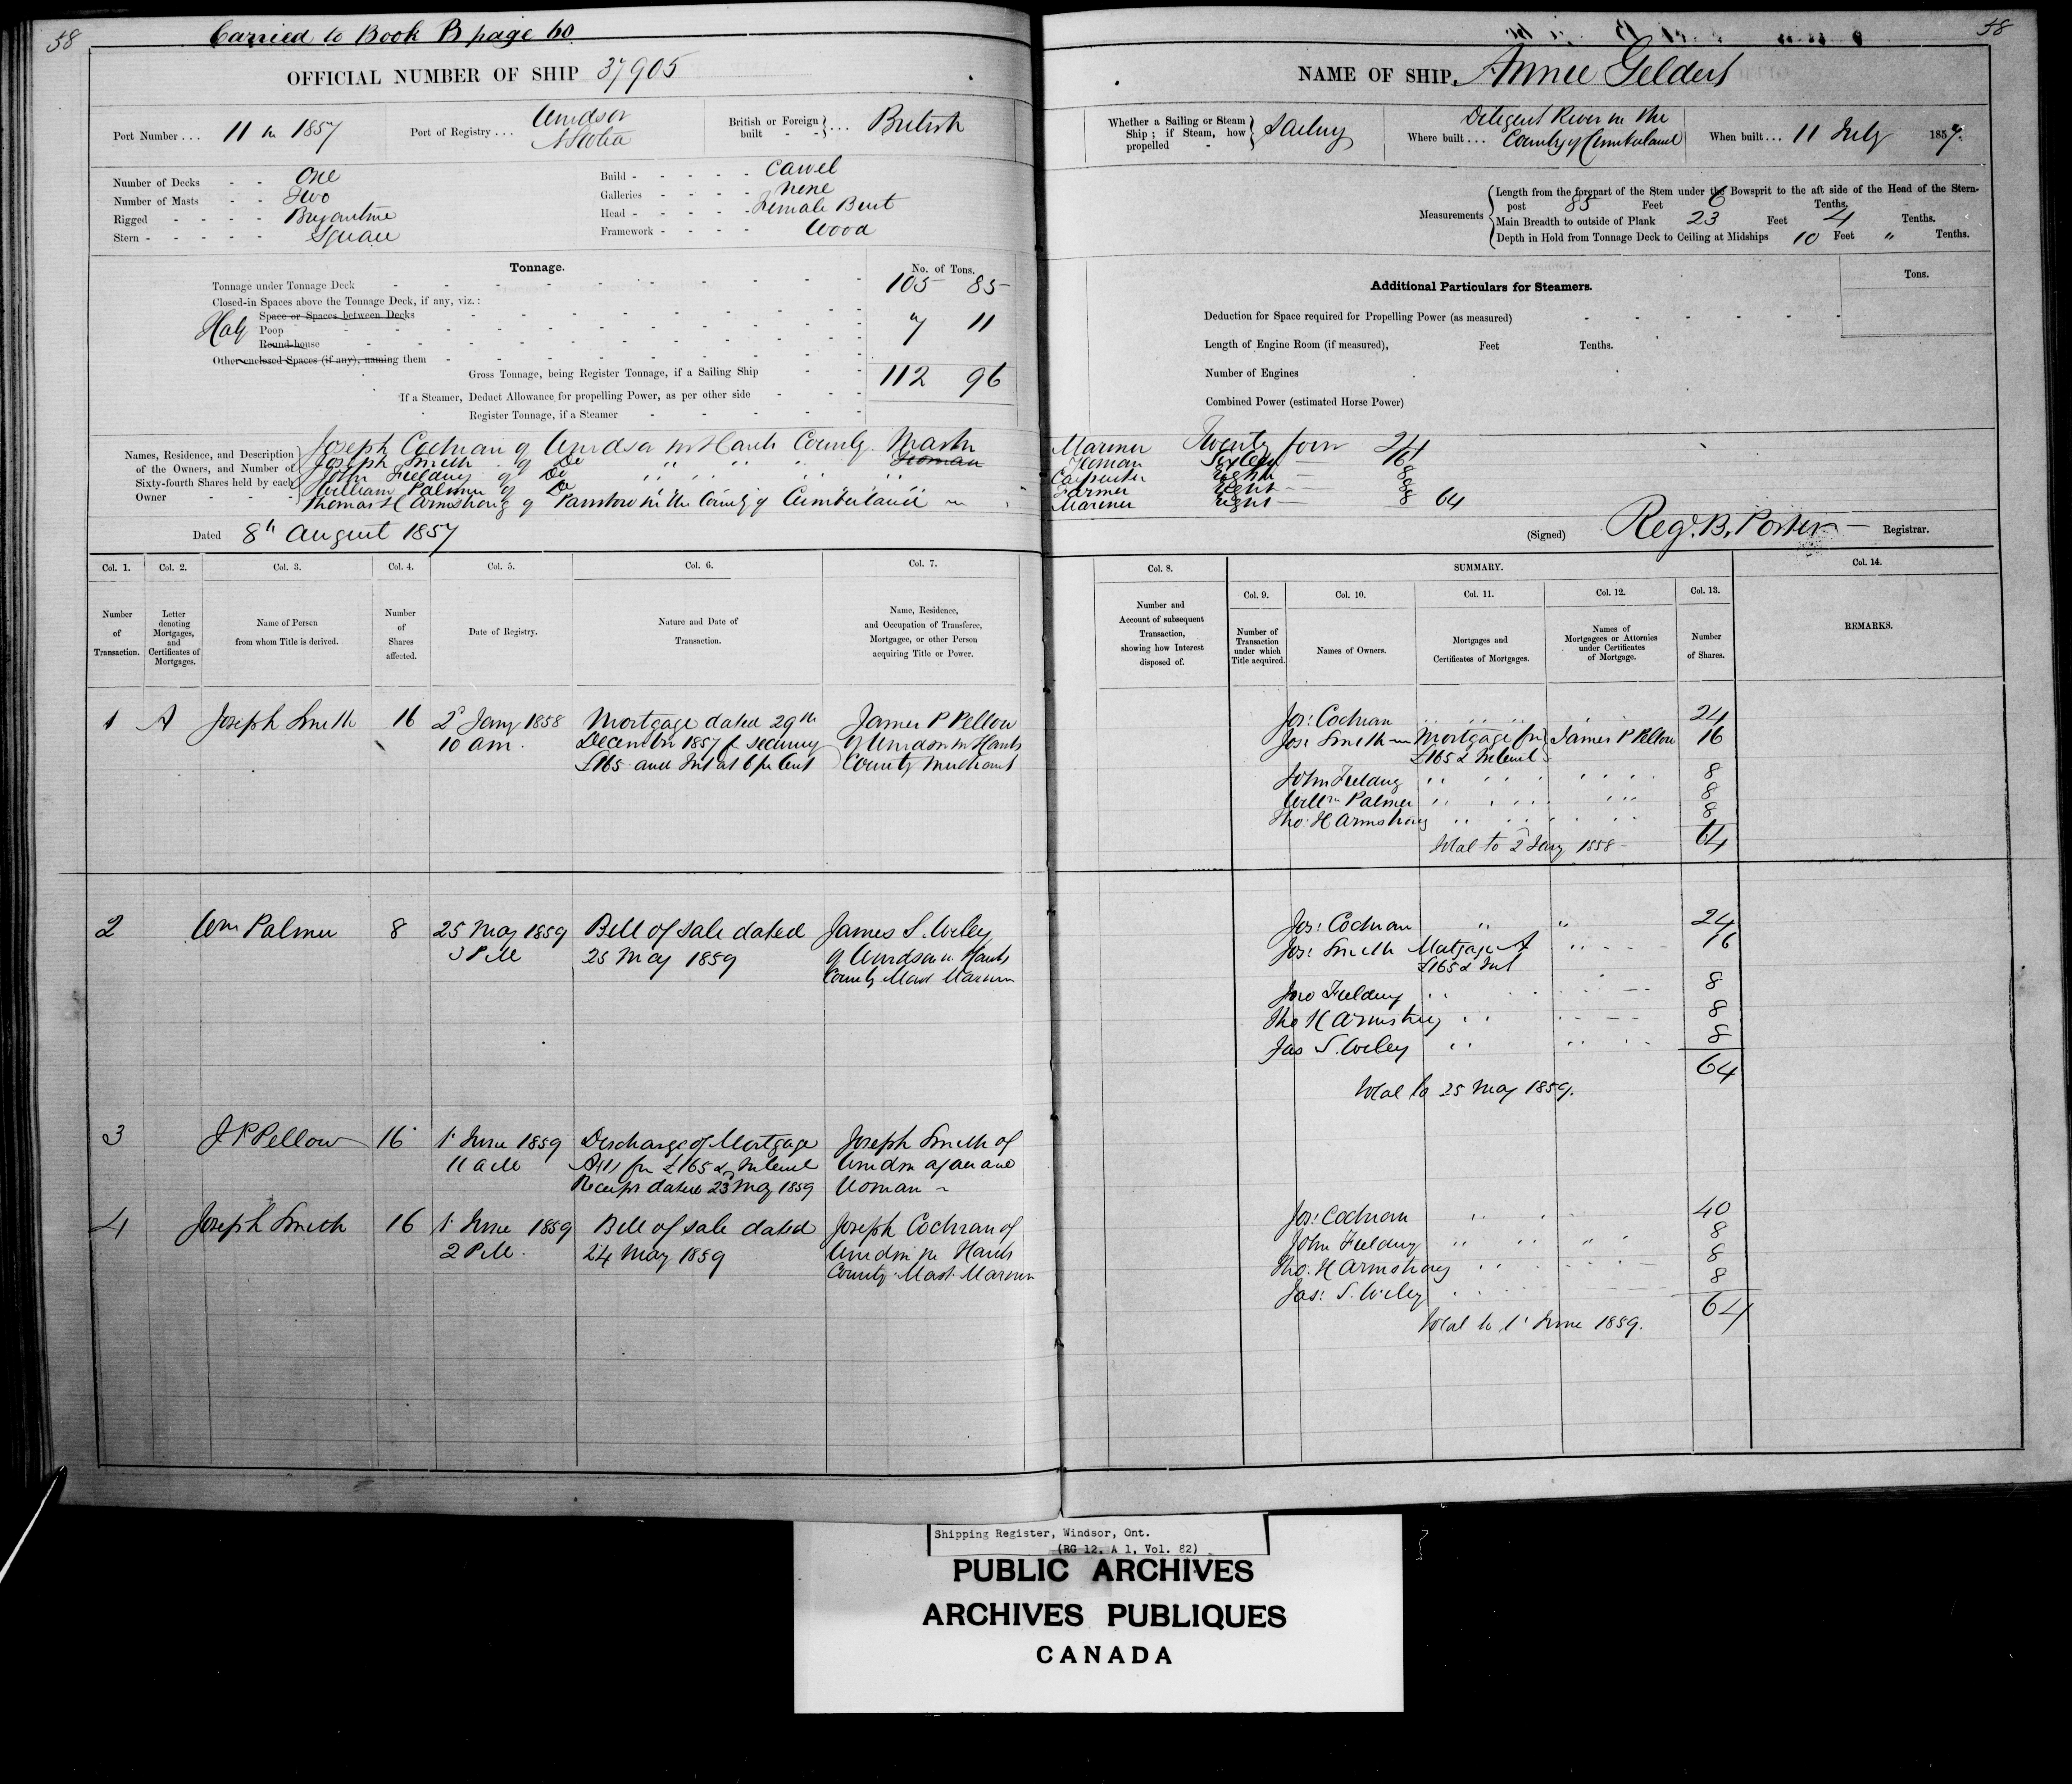 58
Carried to Book B page 60
OFFICIAL NUMBER OF SHIP 37905
Port Number ... 11 in 1857
Port of Registry ... Windsor
N Scotia
British or Foreign built - - } ... British
Number of Decks - - One
Number of Masts - - Two
Rigged - - - - Brigantine
Stern - - - - - Square
Build - - - - - Carvel
Galleries - - - - None
Head - - - - - Female Bust
Framework - - - - Wood
Tonnage.
No. of Tons.
Tonnage under Tonnage Deck 105 85
Closed-in Spaces above the Tonnage Deck, if any, viz.:
Space or Spaces between Decks
Half Poop 7 11
Round-house
Other enclosed Spaces (if any), naming them
Gross Tonnage, being Register Tonnage, if a Sailing Ship 112 96
If a Steamer, Deduct Allowance for propelling Power, as per other side
Register Tonnage, if a Steamer
Names, Residence, and Description of the Owners, and Number of Sixty-fourth Shares held by each Owner
Joseph Cochran of Windsor in Hants County Master
Joseph Smith of Do " " " Yeoman
John Fielding of Do " " " "
William Palmer of Do " " " "
Thomas H Armstrong of Parrsboro in the County of Cumberland
Dated 8th August 1857
Col. 1. Col. 2. Col. 3. Col. 4. Col. 5. Col. 6. Col. 7.
Number of Transaction.
Letter denoting Mortgages, and Certificates of Mortgages.
Name of Person from whom Title is derived.
Number of Shares affected.
Date of Registry.
Nature and Date of Transaction.
Name, Residence, and Occupation of Transferee, Mortgagee, or other Person acquiring Title or Power.
1 A Joseph Smith 16 2d Jany 1858 Mortgage dated 29th James P Pellow
10 am. December 1857 for securing of Windsor in Hants
£165 and Int at 6 pr Cent County Merchant
2 Wm Palmer 8 25 May 1859 Bill of sale dated James S. Wiley
3 PM 25 May 1859 of Windsor in Hants
County Mast Mariner
3 J P Pellow 16 1 June 1859 Discharge of Mortgage Joseph Smith of
11 aM for £165 & Interest Windsor
Receipt dated 23 May 1859 Yeoman
4 Joseph Smith 16 1 June 1859 Bill of sale dated Joseph Cochran of
2 PM. 24 May 1859 Windsor in Hants
County Mast. Mariner
58
NAME OF SHIP, Annie Geldert
Whether a Sailing or Steam Ship; if Steam, how propelled - } Sailing
Where built ... Diligent River in the
County of Cumberland
When built ... 11 July 1857.
Measurements
Length from the forepart of the Stem under the Bowsprit to the aft side of the Head of the Stern-
post 85 Feet 6 Tenths.
Main Breadth to outside of Plank 23 Feet 4 Tenths.
Depth in Hold from Tonnage Deck to Ceiling at Midships 10 Feet " Tenths.
Additional Particulars for Steamers.
Tons.
Deduction for Space required for Propelling Power (as measured)
Length of Engine Room (if measured), Feet Tenths.
Number of Engines
Combined Power (estimated Horse Power)
Mariner Twenty four 24
Yeoman Sixteen 16
Carpenter Eight 8
Farmer Eight 8
Mariner Eight 8 64
(Signed) Reg. B. Porter Registrar.
Col. 8. SUMMARY. Col. 14.
Col. 9. Col. 10. Col. 11. Col. 12. Col. 13.
Number and Account of subsequent Transaction, showing how Interest disposed of.
Number of Transaction under which Title acquired.
Names of Owners.
Mortgages and Certificates of Mortgages.
Names of Mortgagees or Attornies under Certificates of Mortgage.
Number of Shares.
REMARKS.
Jos: Cochran 24
Jos: Smith Mortgage for James P Pellow 16
£165 & Interest
John Fielding 8
Willm Palmer 8
Tho: H Armstrong 8
Total to 2 Jany 1858 64
Jos: Cochran " " 24
Jos: Smith Mortgage A 16
£165 & Int
Jno Fielding 8
Tho H Armstrong 8
Jas S. Wiley 8
64
Total to 25 May 1859.
Jos: Cochran 40
John Fielding 8
Tho. H Armstrong 8
Jas: S. Wiley 8
64
Total to 1 June 1859.
Shipping Register, Windsor, Ont.
(RG 12, A 1, Vol. 82)
PUBLIC ARCHIVES
ARCHIVES PUBLIQUES
CANADA